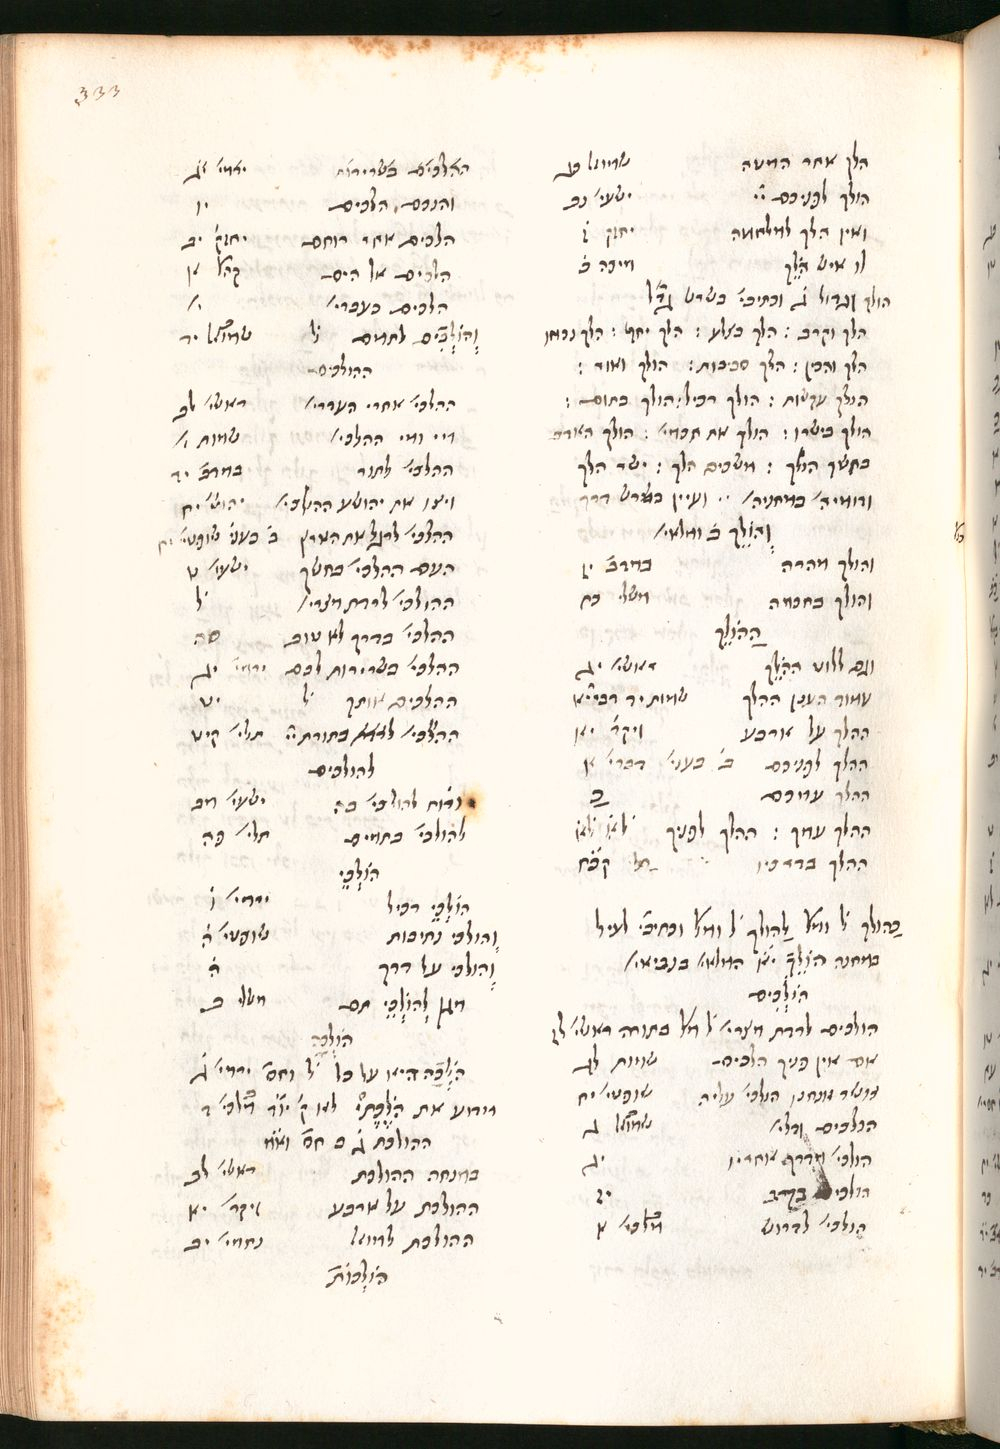 333
הלך אחר המטה שמואל כג
הולך לפניכם יי ישעי׳ נב
ואין הלך למלחמה יחזק׳ ז
לו איש הֹלֵך מיכה ב
הולך וגדול ג וכתיבי׳ בשרש גדל
הלך וקרב : הלך בצלע : הלך יחף : הלך נכחו
הלך והבין : הלך סביבות : הולך ואור :
הולך עקשות : הולך רכיל : הולך בתום :
הולך בישרו : הולך את חכמי׳ : הולך הארב
בחשך הולך : משכים הלך : ישר הלך
ודומיה׳ במתניה׳ ועיין בשרש דרך
וְהוֹלֵך ב ומלאי׳
והולך מהרה במדב׳ יז
והולך בחכמה משלי כח
הַהוֹלֵך
וגם ללוט הַהֹלֵך ראשי׳ יג
עמוד הענן ההלך שמות יד
ההלך על ארבע ויקר׳ יא
ההלך לפניכם ב׳ בעני׳ דברי׳ א
ההלך עמכם כ
ההלך עמך : ההלך לפניך לא לא
ההלך בדרכיו תלי׳ קכח
כהולך ל׳ ומל׳ להולך ל׳ ומל׳ וכתיבי׳ לעיל
במחנה הוֹלֵך המלאי׳ בנביאי׳
הוֹלְכִים
הולכים לרדת מצרי׳ ל׳ מל׳ בתורה ראשי׳ לז
אם אין פניך הלכים שמות לג
כאשר אנחנו הולכי׳ עליה שופטי׳ יח
הולכים ודלי׳ שמואל ג
הולכי׳ מדרך אחריו יג
הולכי׳ בקרב יז
הולכי׳ לדרוש מלכי׳ א
ההלכים בשרירות ירמי׳ יג
והנכם הלכים יו
הלכים אחר רוחם יחזק׳ יג
הלכים אל הים קהל׳ א
הלכים כעברי׳ י׳
וְהוֹלְכִים לתמים ל׳ שמואל יד
ההולכים
ההלכי׳ אחרי העדרי׳ ראשי׳ לב
מי ומי ההלכי׳ שמות י׳
ההלכי׳ לתור במדב׳ יד
ויצו את יהושע ההלכי׳ יהוש׳ יח
ההלכי׳ לרגל את הארץ ב׳ בעני׳ שופטי׳ יח
העם ההלכי׳ בחשך ישעי׳ ט
ההולכי׳ לרדת מצרי׳ ל׳
ההלכי׳ בדרך לא טוב סה
ההלכי׳ בשרירות לבם ירמי׳ יג
ההלכים אותך ל׳ יט
ההלכי׳ בתורת יי תלי׳ קיט
להולכים
ורוח להולכי׳ בה ישעי׳ מב
להולכי׳ בתמים תלי׳ פה
הוֹלְכֵי
הוֹלְכֵי רכיל ירמי׳ ו
והולכי נתיבות שופטי׳ ה
והולכי על דרך ה
מגן לְהוֹלְכֵי תם משלי ב
הוֹלְכָה
הֹלְכָה היא על כל ל׳ וחס׳ ירמי׳ ג
מדוע את הֹלֶכֶת לא ק׳ יו׳ד מלכי׳ ד
ההולכת ג ב חס׳ וא׳ מ׳
במנחה ההולכת ראשי׳ לב
ההולכת על ארבע ויקר׳ יא
ההולכת למואל נחמי׳ יב
הוֹלְכוֹת